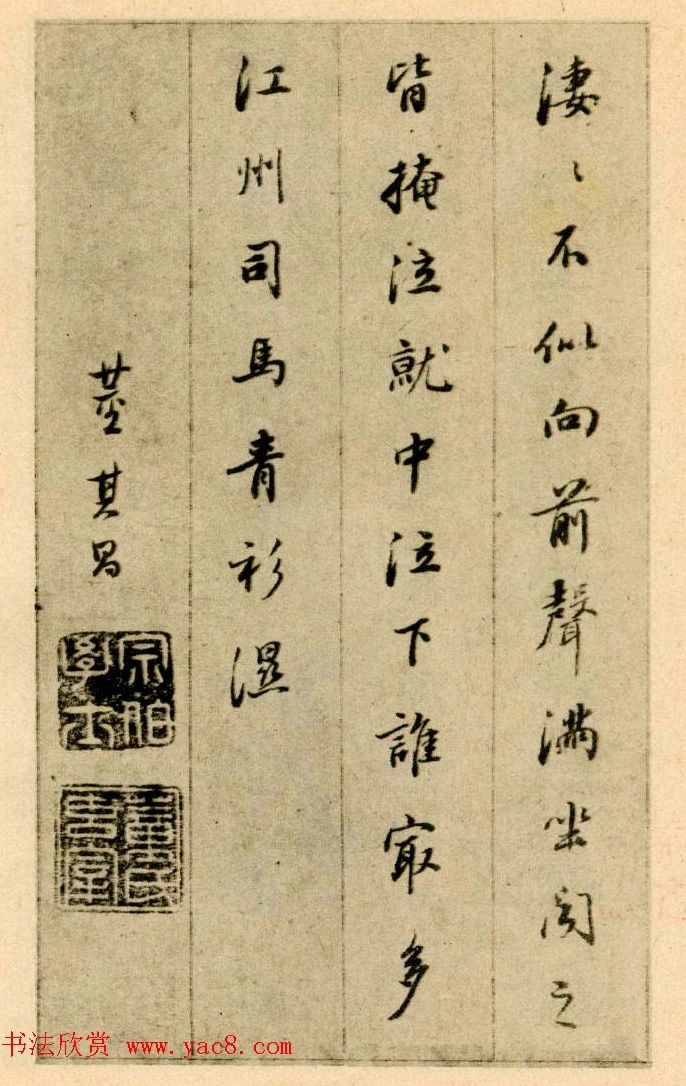 淒〻不似向前聲滿坐聞之
皆掩泣就中泣下誰㝡多
江州司馬青衫濕
董其昌
宗伯學士
书法欣赏 www.yac8.com